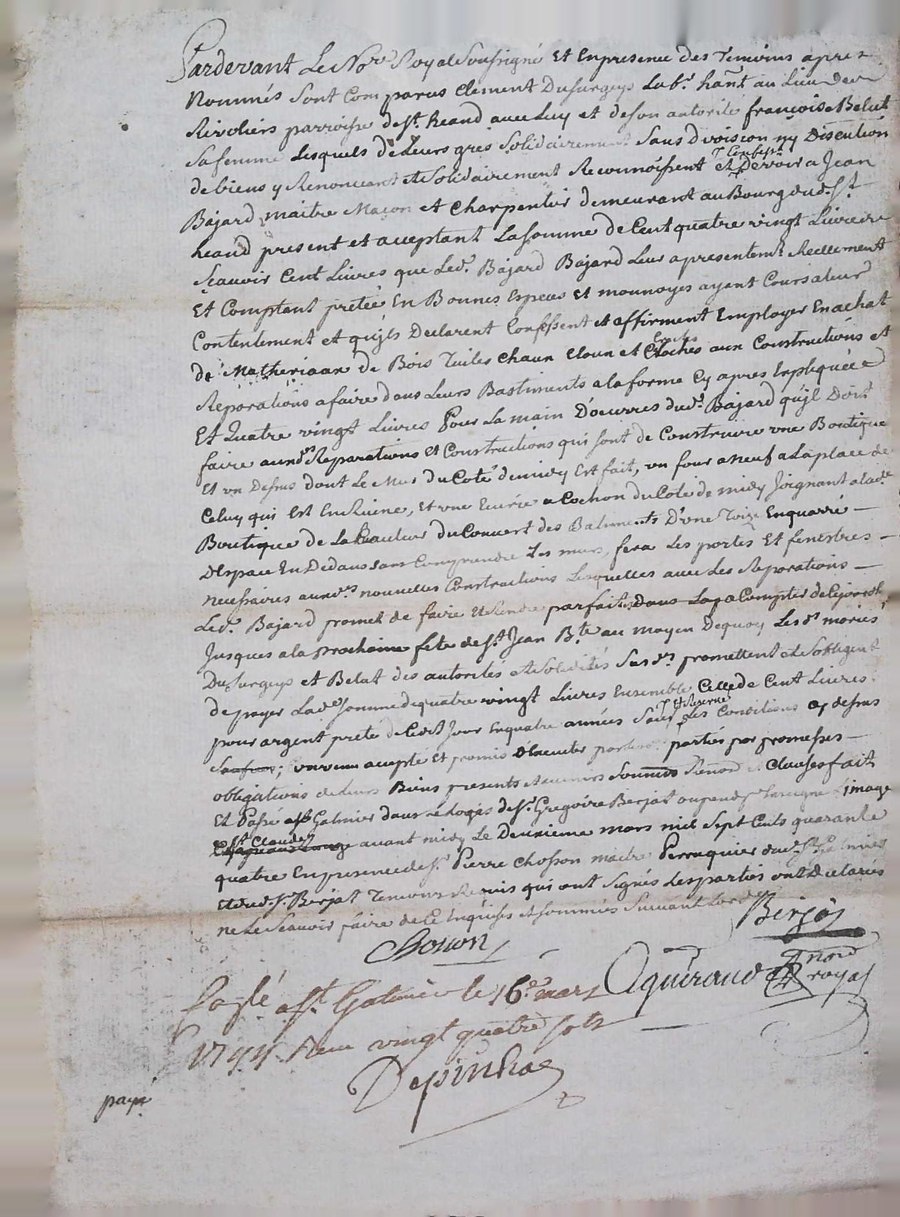 Pardevant Le No.re Royal Soussigné Et Enpresence des Temoins apres
Nommés sont Comparus Clement Dusurgeys Lab.r hant au Lieu des
Rivoliers parroisse de St. heand avec Luy et deson autorité francoise Belat
Safemme Lesquels de Leurs gres Solidairement Sans division ny Discution
de biens y Renoncant et Solidairement Reconnoissent et Confessent Devoir a Jean
Bajard maitre Macon et Charpentier demeurant au Bourg dud. St.
heand present et acceptant La somme de Cent quatre vingt Livres
Scavoir Cent Livres que Led. Bajard Bajard Leur apresentemt. Reellement
Et Comptant pretée En Bonnes Especes et monnoyes ayant Cours aleur
Contentement et qujls Declarent Confessent et affirment Employer En achat
de Matheriaux de Bois Tuiles chaux Cloux et Croches aux Constructions et
Reparations afaire dans Leurs Bastiments a la forme Cy apres Expliquée
Et Quatre vingt Livres Pour La main D'oeuvres dud. Bajard qujl Doit
faire auxd. Reparations et Constructions qui sont de Construire une Boutique
Et un Dessus dont Le Mur du Coté de midy Est fait, un four a neuf a La place de
Celuy qui est En Ruine, Et une Ecurie a Cochon du Coté de midy Joignant a lad.
Boutique de La hauteur du Couvert des Batiments D'une Toize En quarré
D'Espace En Dedans sans Comprendre Les murs, fera Les portes Et fenestres
necessaires auxd. nouvelles Constructions Lesquelles avec Les Reparations
Led. Bajard promet de faire Et Rendre parfaites dans La Compter de Cejourdh.
Jusques a la prochaine fete de St. Jean B.te au moyen Dequoy Les d. mariés
Dusurgeys et Belat des autorités et Solidités Susd. promettent et Sobligent
de payer Lad. somme de quatre vingt Livres Ensemble Celle de Cent Livres
pour argent preté de Cejour En quatre années Sauf et Reserve Les Conditions Cy dessus
convenu accepté et promis Executer par Les parties par promesses
obligations de Leurs Biens presents et avenirs Soumis Renond. Clauses fait
Et Passé a St. Galmier dans Le Logis de Sr. Gregoire Berjat ou pend pour Enseigne L'image
St. Claude avant midy Le Deuxieme mars mil Sept Cents quarante
quatre En presence de Sr. Pierre Chosson maitre Perruquier dud. St. Galmier
et dud. Sr. Berjat Temoins Requis qui ont Signés Les parties ont Declarés
ne Le Scavoir faire de Ce Enquises et Sommées Suivant Lord.
Berjat
Chosson
Aguiraud
nore
royal
Conlé a St. Galmier le 16e. mars
1744. Reçu vingt quatre sols
Depinhac
payé